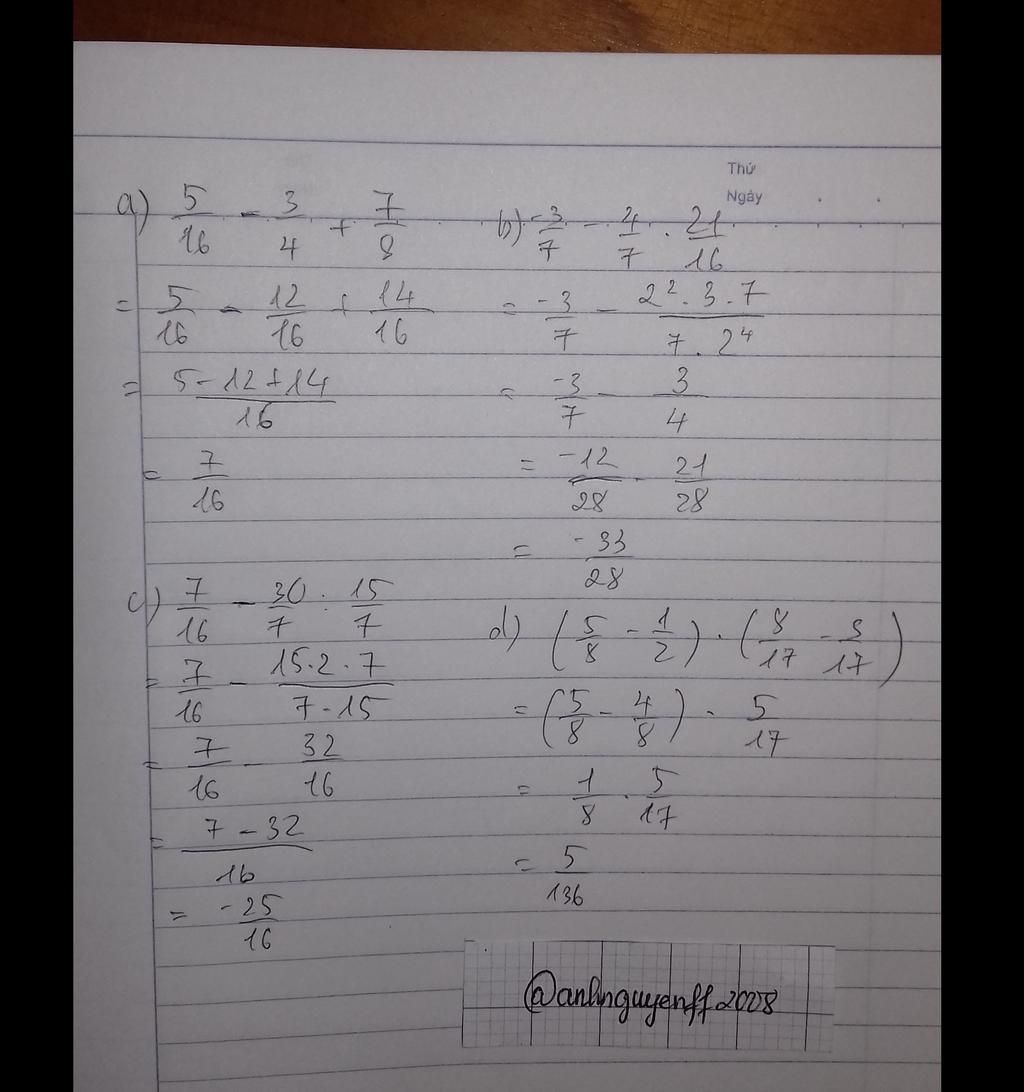 Thứ
Ngày
a) 5/16 - 3/4 + 7/8
= 5/16 - 12/16 + 14/16
= (5 - 12 + 14)/16
= 7/16
b) -3/7 - 4/7 . 21/16
= -3/7 - (2² . 3 . 7)/(7 . 2⁴)
= -3/7 - 3/4
= -12/28 - 21/28
= -33/28
c) 7/16 - 30/7 : 15/7
= 7/16 - (15 . 2 . 7)/(7 . 15)
= 7/16 - 32/16
= (7 - 32)/16
= -25/16
d) (5/8 - 1/2) . (8/17 - 3/17)
= (5/8 - 4/8) . 5/17
= 1/8 . 5/17
= 5/136
@anhnguyenff2028